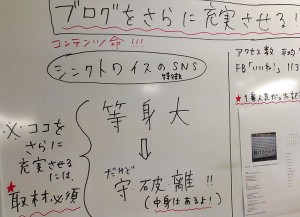 ブログをさらに充実させる!
コンテンツ命!!!
シンクトワイスのSNS
特徴
等身大
⇩
だけど
守破離!!
(中身はあるよ!)
※ココを
さらに
充実させる
には、
★
取材必須
アクセス数 平均
FB「いいね!」113
★1番人気だった記